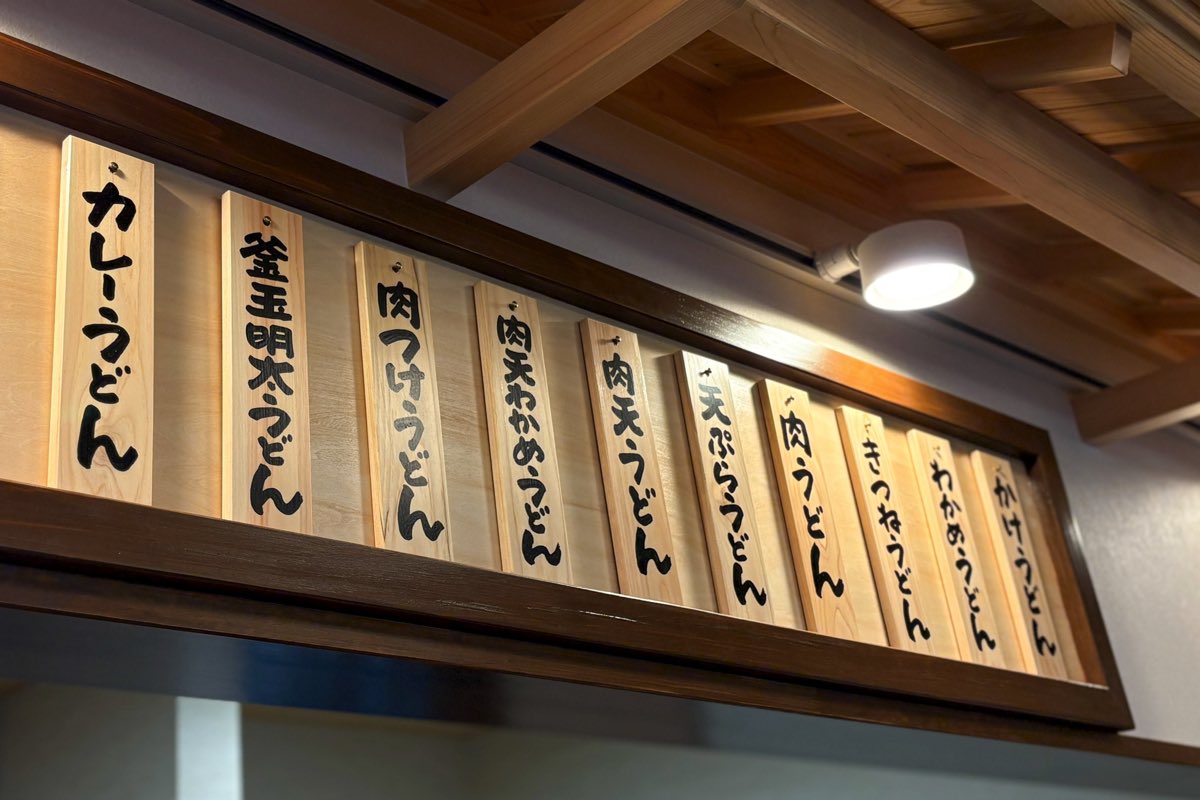 かけうどん
わかめうどん
きつねうどん
肉うどん
天ぷらうどん
肉天うどん
肉天わかめうどん
肉つけうどん
釜玉明太うどん
カレーうどん